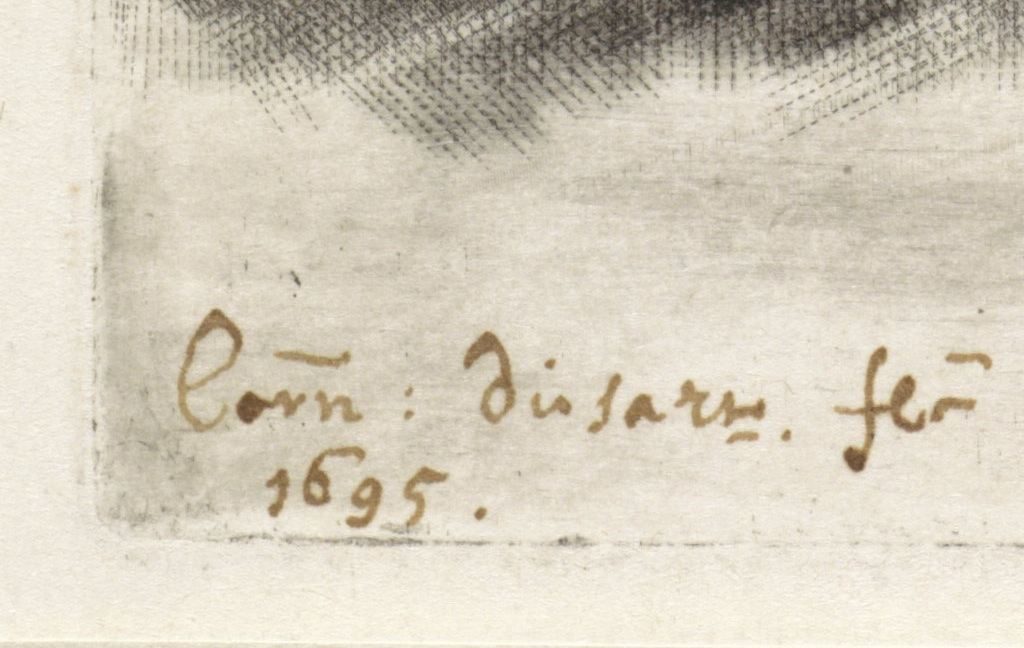 Corn̄ : dusart. fec̄
1695.